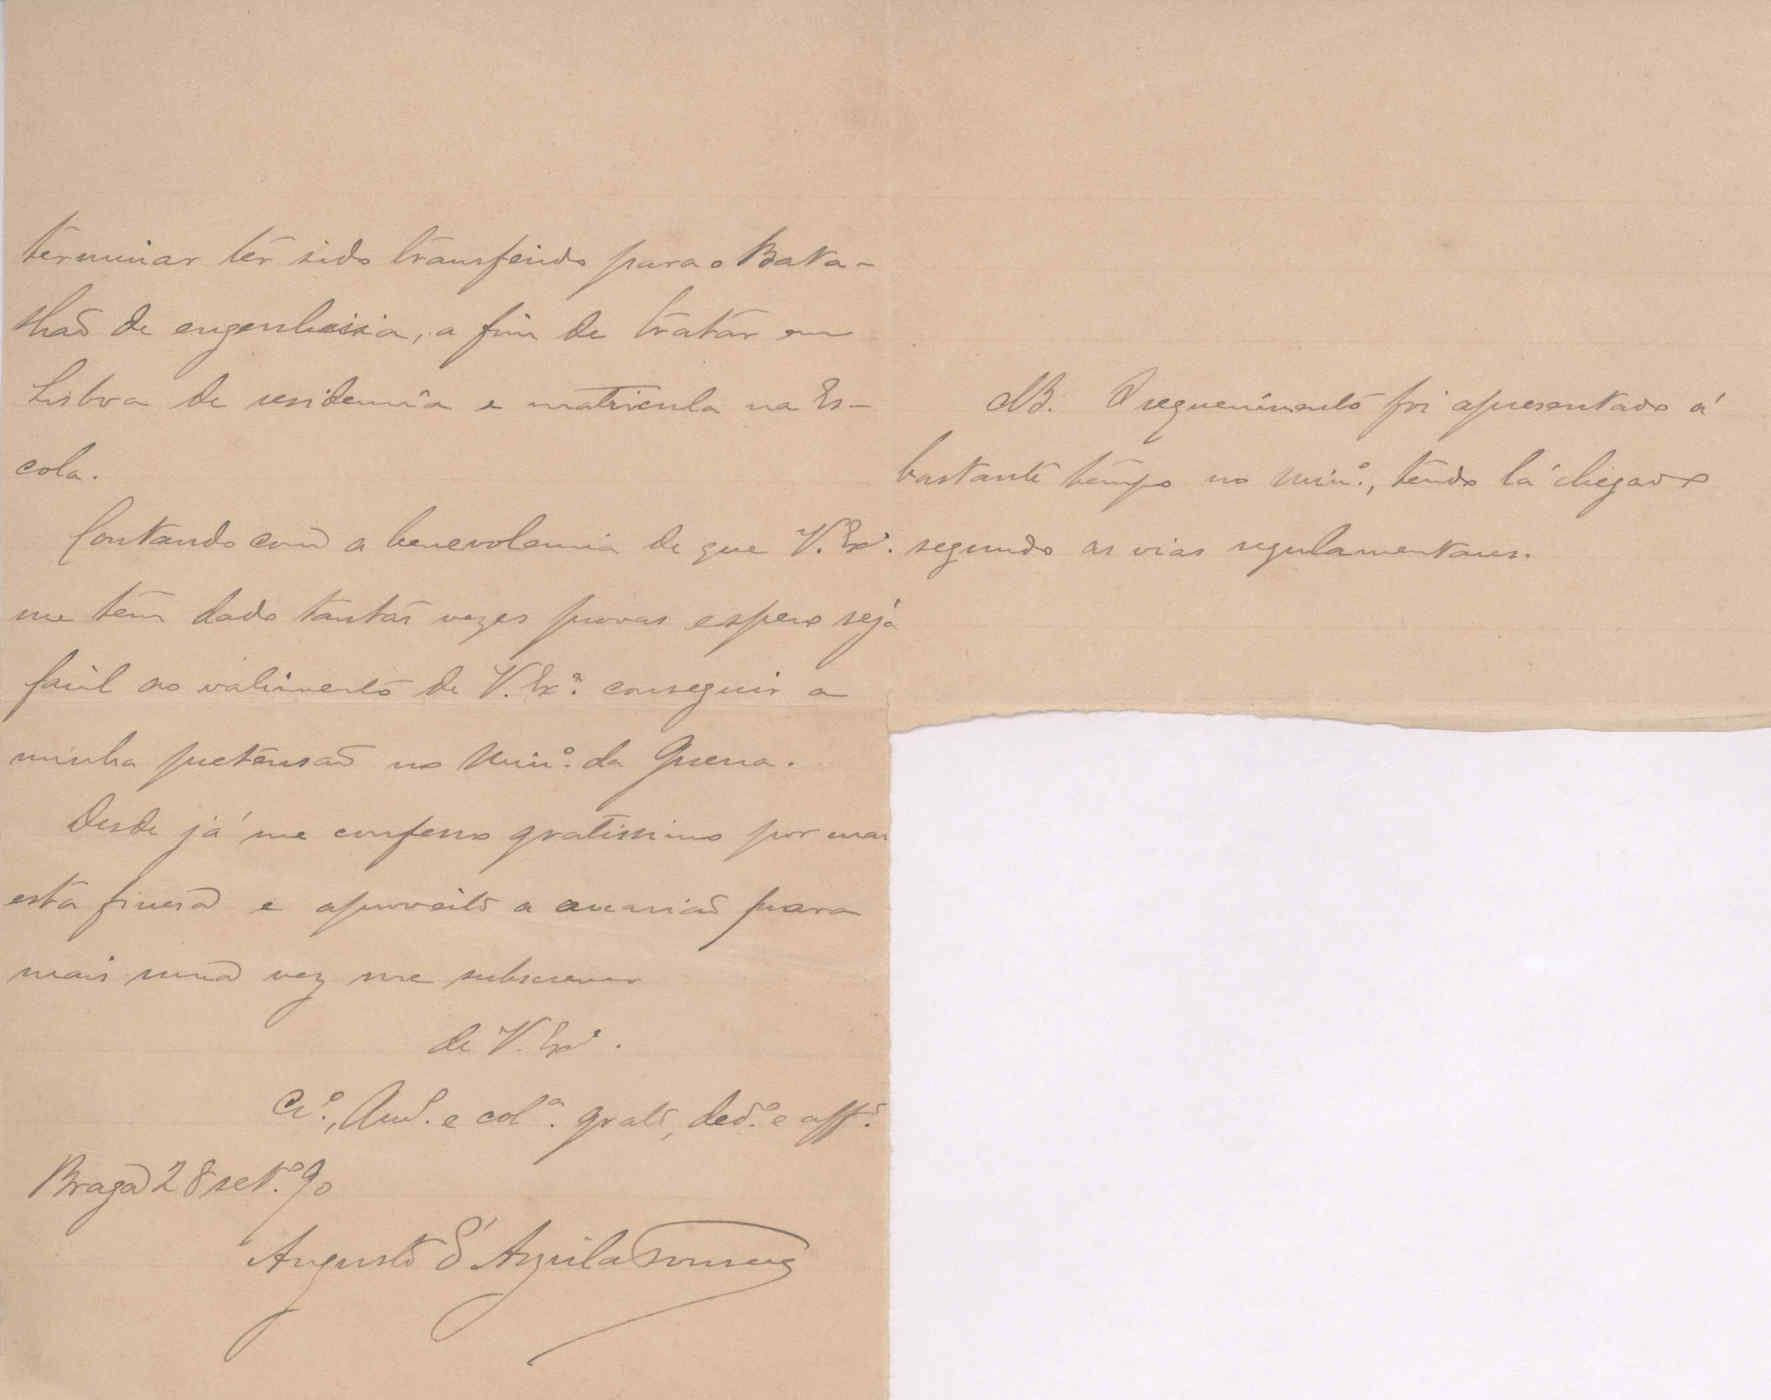 terminar ter sido transferido para o Bata-
lhão de engenharia, a fim de tratar em
Lisboa de residencia e matricula na Es-
cola.
Contando com a benevolencia de que V. Exª.
me tem dado tantas vezes provas espero seja
facil ao valimento de V. Exª. conseguir a
minha pretensão no Minº. da Guerra.
Desde já me confesso gratissimo por mais
esta fineza e aproveito a occasião para
mais uma vez me subscrever
de V. Exª.
Crº., Amº. e colª. grato, dedº. e affº.
Braga 28 setº. 90
Augusto d'Aguila
NB. O requerimento foi apresentado á
bastante tempo no Minº., tendo lá chegado
segundo as vias regulamentares.